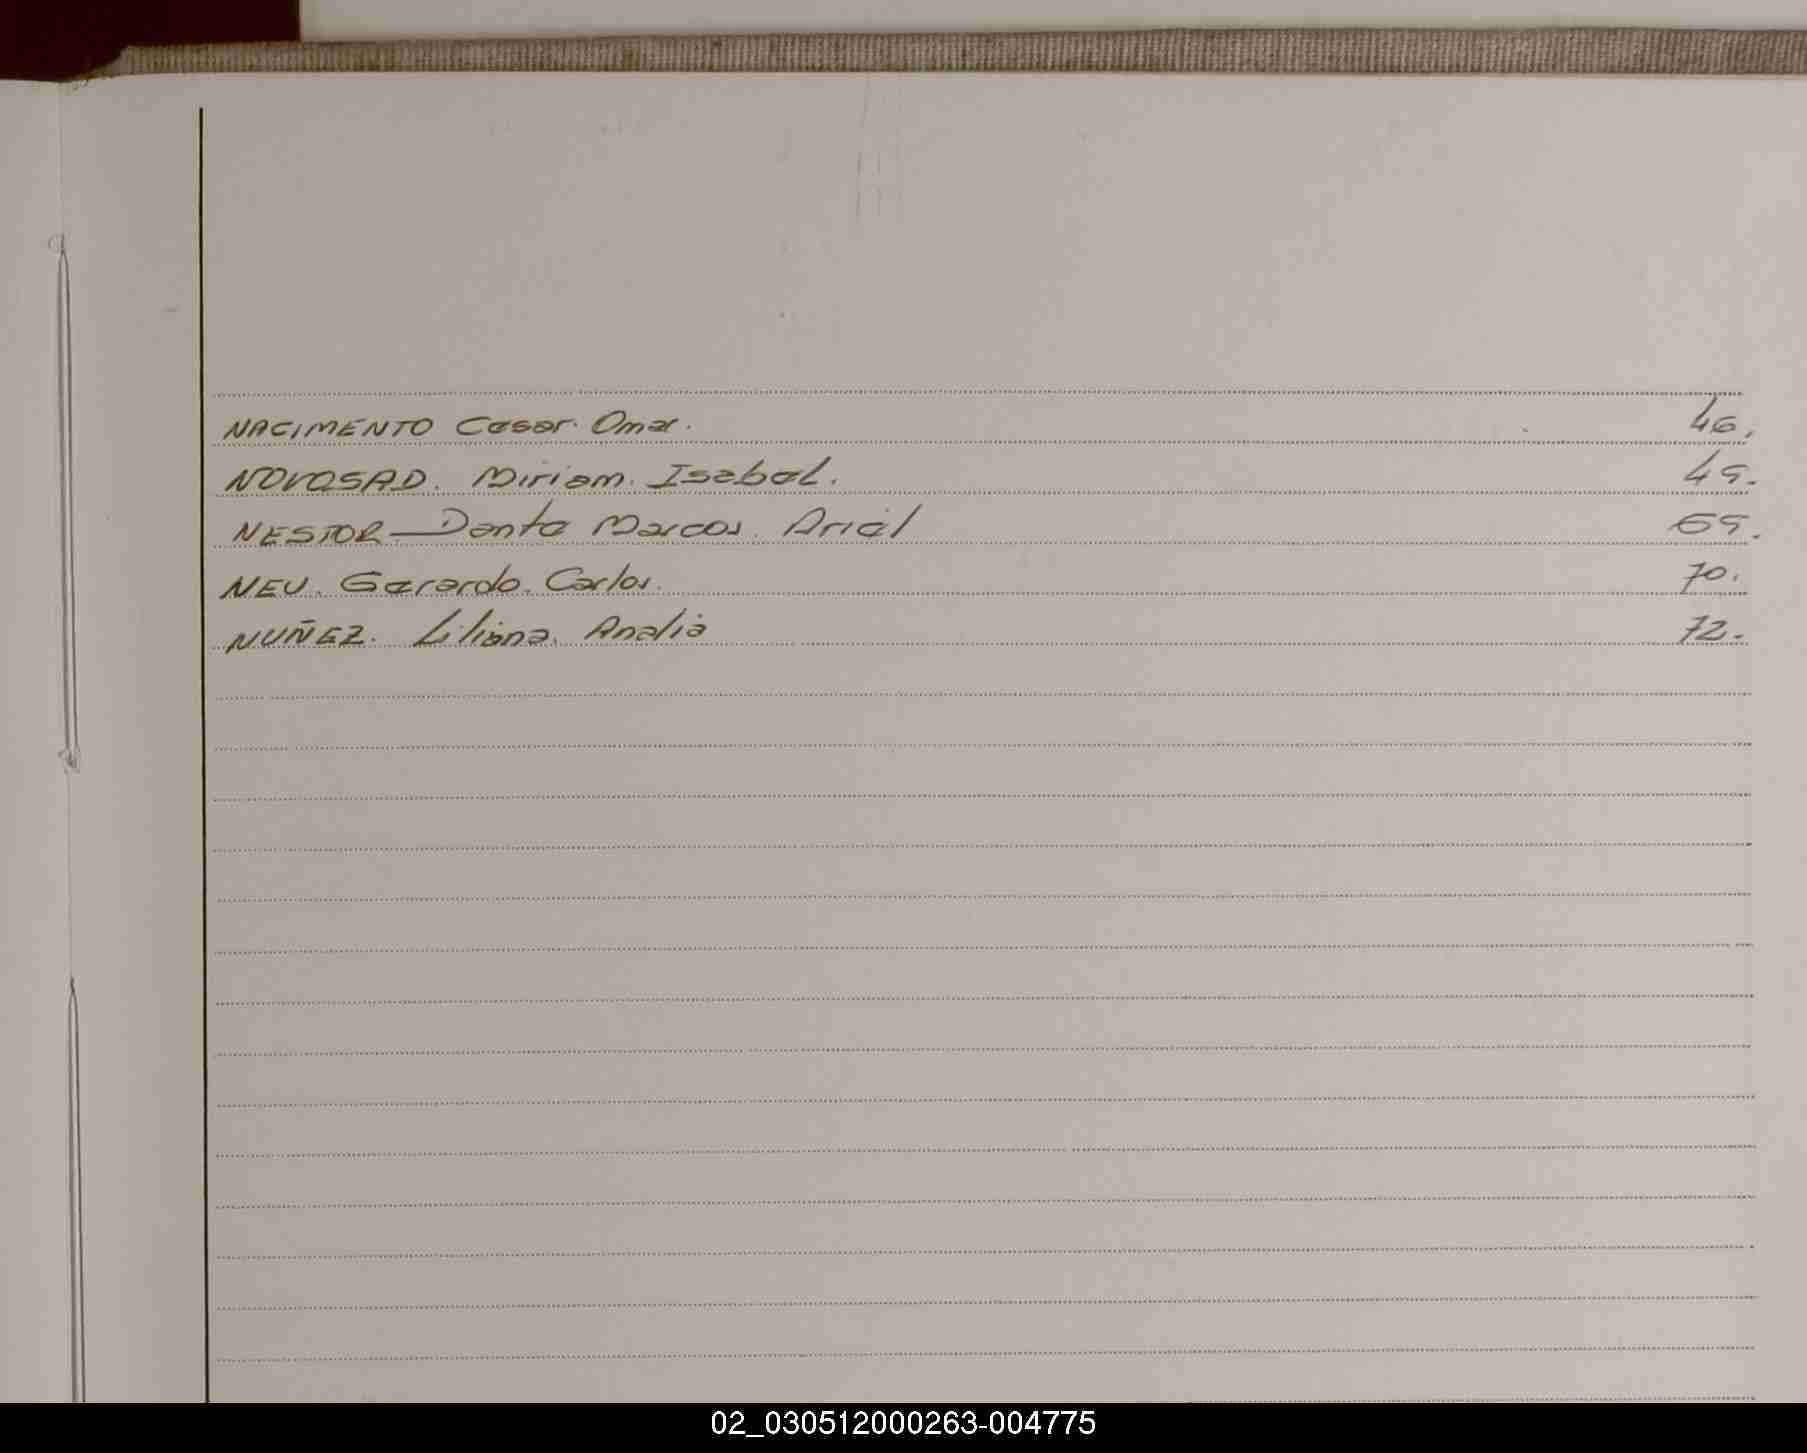 NACIMENTO Cesar. Omar. 46.
NOVOSAD. Miriam. Isabel. 49.
NESTOR — Dante Marcos. Ariel 69.
NEU. Gerardo. Carlos. 70.
NUÑEZ. Liliana. Analia 72.
02_030512000263-004775